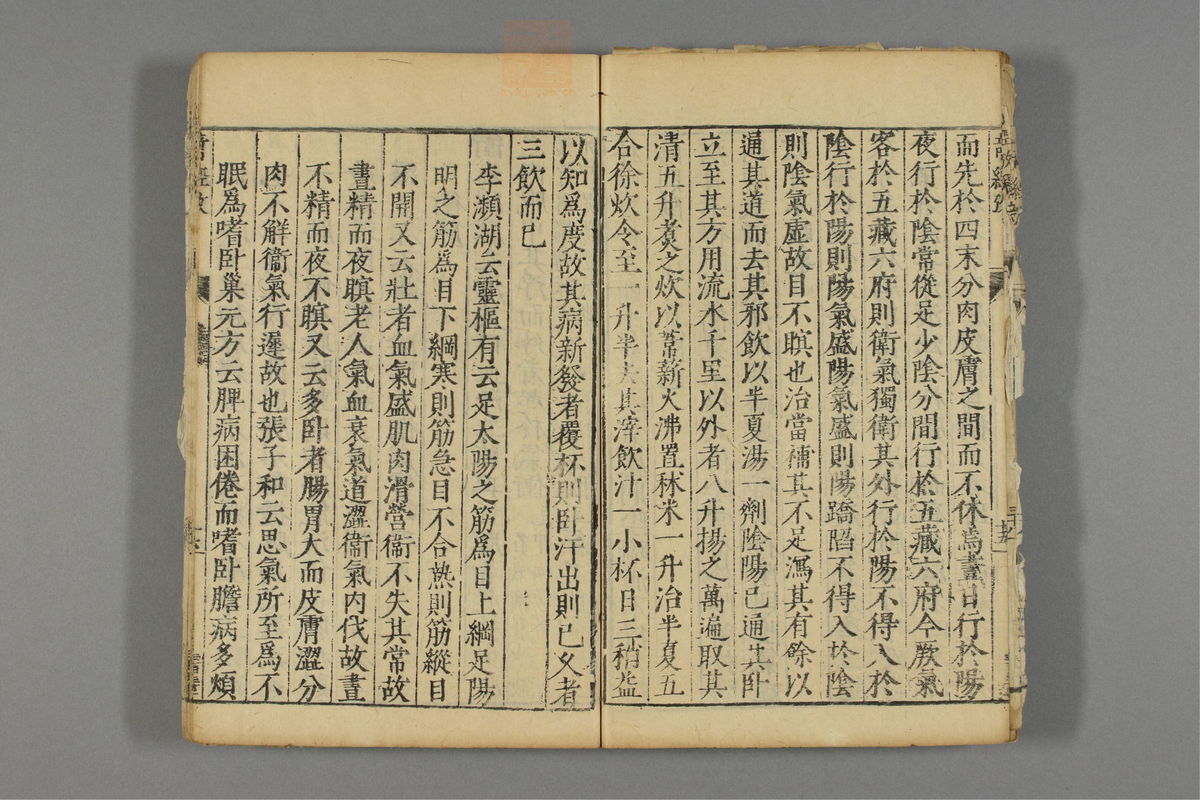 而先於四末分肉皮膚之間而不休焉晝日行於陽
夜行於陰常從足少陰分間行於五藏六府今厥氣
客於五藏六府則衛氣獨衛其外行於陽不得入於
陰行於陽則陽氣盛陽氣盛則陽蹻陷不得入於陰
則陰氣虛故目不瞑也治當補其不足瀉其有餘以
通其道而去其邪飲以半夏湯一劑陰陽已通其卧
立至其方用流水千里以外者八升揚之萬遍取其
清五升煑之炊以葦薪火沸置秫米一升治半夏五
合徐炊令至一升半去其滓飲汁一小杯日三稍益
以知爲度故其病新發者覆杯則卧汗出則已久者
三飲而已
李瀕湖云靈樞有云足太陽之筋爲目上綱足陽
明之筋爲目下綱寒則筋急目不合熱則筋縱目
不開又云壯者血氣盛肌肉滑營衞不失其常故
晝精而夜瞑老人氣血衰氣道澀衞氣内伐故晝
不精而夜不瞑又云多卧者腸胃大而皮膚澀分
肉不解衞氣行遲故也張子和云思氣所至爲不
眠爲嗜卧巢元方云脾病困倦而嗜卧膽病多煩